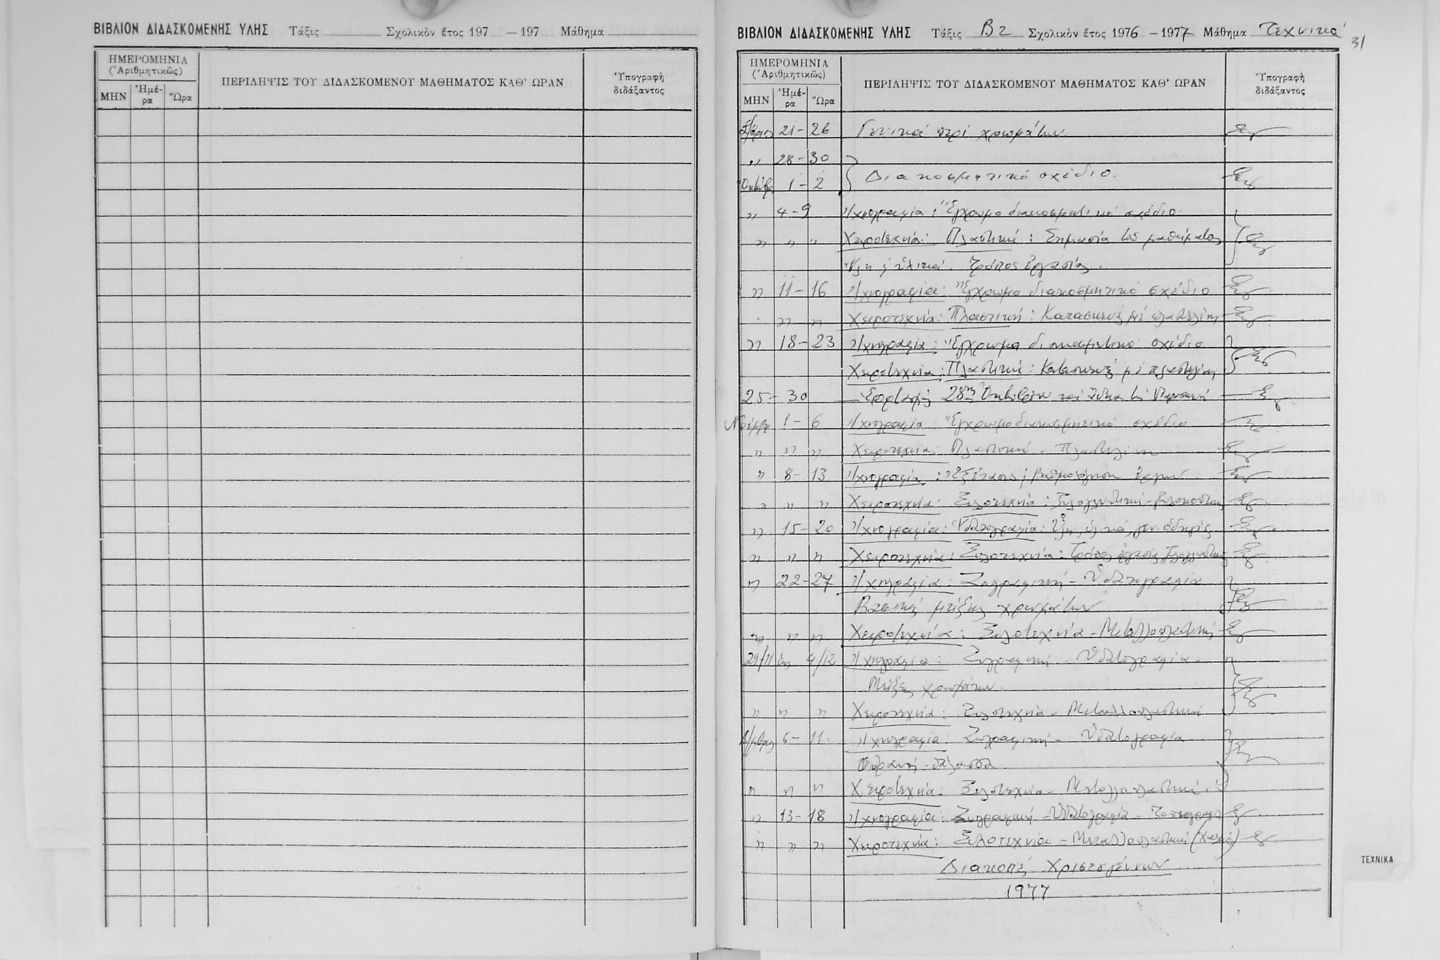 ΒΙΒΛΙΟΝ ΔΙΔΑΣΚΟΜΕΝΗΣ ΥΛΗΣ Τάξις Σχολικὸν ἔτος 197 — 197 Μάθημα
ΗΜΕΡΟΜΗΝΙΑ
(Ἀριθμητικῶς)
ΜΗΝ Ἡμέ-ρα Ὥρα
ΠΕΡΙΛΗΨΙΣ ΤΟΥ ΔΙΔΑΣΚΟΜΕΝΟΥ ΜΑΘΗΜΑΤΟΣ ΚΑΘ' ΩΡΑΝ
Ὑπογραφὴ
διδάξαντος
ΒΙΒΛΙΟΝ ΔΙΔΑΣΚΟΜΕΝΗΣ ΥΛΗΣ Τάξις Β2 Σχολικὸν ἔτος 1976 — 1977 Μάθημα Τεχνικά
31
ΗΜΕΡΟΜΗΝΙΑ
(Ἀριθμητικῶς)
ΜΗΝ Ἡμέ-ρα Ὥρα
ΠΕΡΙΛΗΨΙΣ ΤΟΥ ΔΙΔΑΣΚΟΜΕΝΟΥ ΜΑΘΗΜΑΤΟΣ ΚΑΘ' ΩΡΑΝ
Ὑπογραφὴ
διδάξαντος
21 - 26 Γενικά περί χρωμάτων
" 28 - 30
1 - 2 Διακοσμητικό σχέδιο.
" 4 - 9 Ἰχνογραφία: Ἔγχρωμο διακοσμητικό σχέδιο
" " " Χειροτεχνία: Πλαστική: Σημασία τοῦ μαθήματος
ὑλικά. Τρόπος ἐργασίας.
" 11 - 16 Ἰχνογραφία: Ἔγχρωμο διακοσμητικό σχέδιο
" " Χειροτεχνία: Πλαστική: Κατασκευές μέ πλαστελίνη
" 18 - 23 Ἰχνογραφία: Ἔγχρωμο διακοσμητικό σχέδιο
Χειροτεχνία: Πλαστική: Κατασκευές μέ πλαστελίνη
25 - 30 28ης Ὀκτωβρίου
Νοέμβρ. 1 - 6 Ἰχνογραφία: Ἔγχρωμο διακοσμητικό σχέδιο
" " " Χειροτεχνία: Πλαστική - Πλαστελίνη
" 8 - 13 Ἰχνογραφία:
" " " Χειροτεχνία: Ξυλοτεχνία:
" 15 - 20 Ἰχνογραφία: Ὑδατογραφία:
" " " Χειροτεχνία: Ξυλοτεχνία:
" 22 - 27 Ἰχνογραφία: Ζωγραφική - Ὑδατογραφία
Βασικές μείξεις χρωμάτων
" " " Χειροτεχνία: Ξυλοτεχνία - Μεταλλοπλαστική
29/11 ἕως 4/12 Ἰχνογραφία: Ζωγραφική - Ὑδατογραφία -
Μείξεις χρωμάτων.
" " " Χειροτεχνία: Ξυλοτεχνία - Μεταλλοπλαστική
6 - 11 Ἰχνογραφία: Ζωγραφική - Ὑδατογραφία
Οὐρανός - θάλασσα.
" " " Χειροτεχνία: Ξυλοτεχνία - Μεταλλοπλαστική.
" 13 - 18 Ἰχνογραφία: Ζωγραφική - Ὑδατογραφία -
" " " Χειροτεχνία: Ξυλοτεχνία - Μεταλλοπλαστική
Διακοπές Χριστουγέννων
1977
ΤΕΧΝΙΚΑ